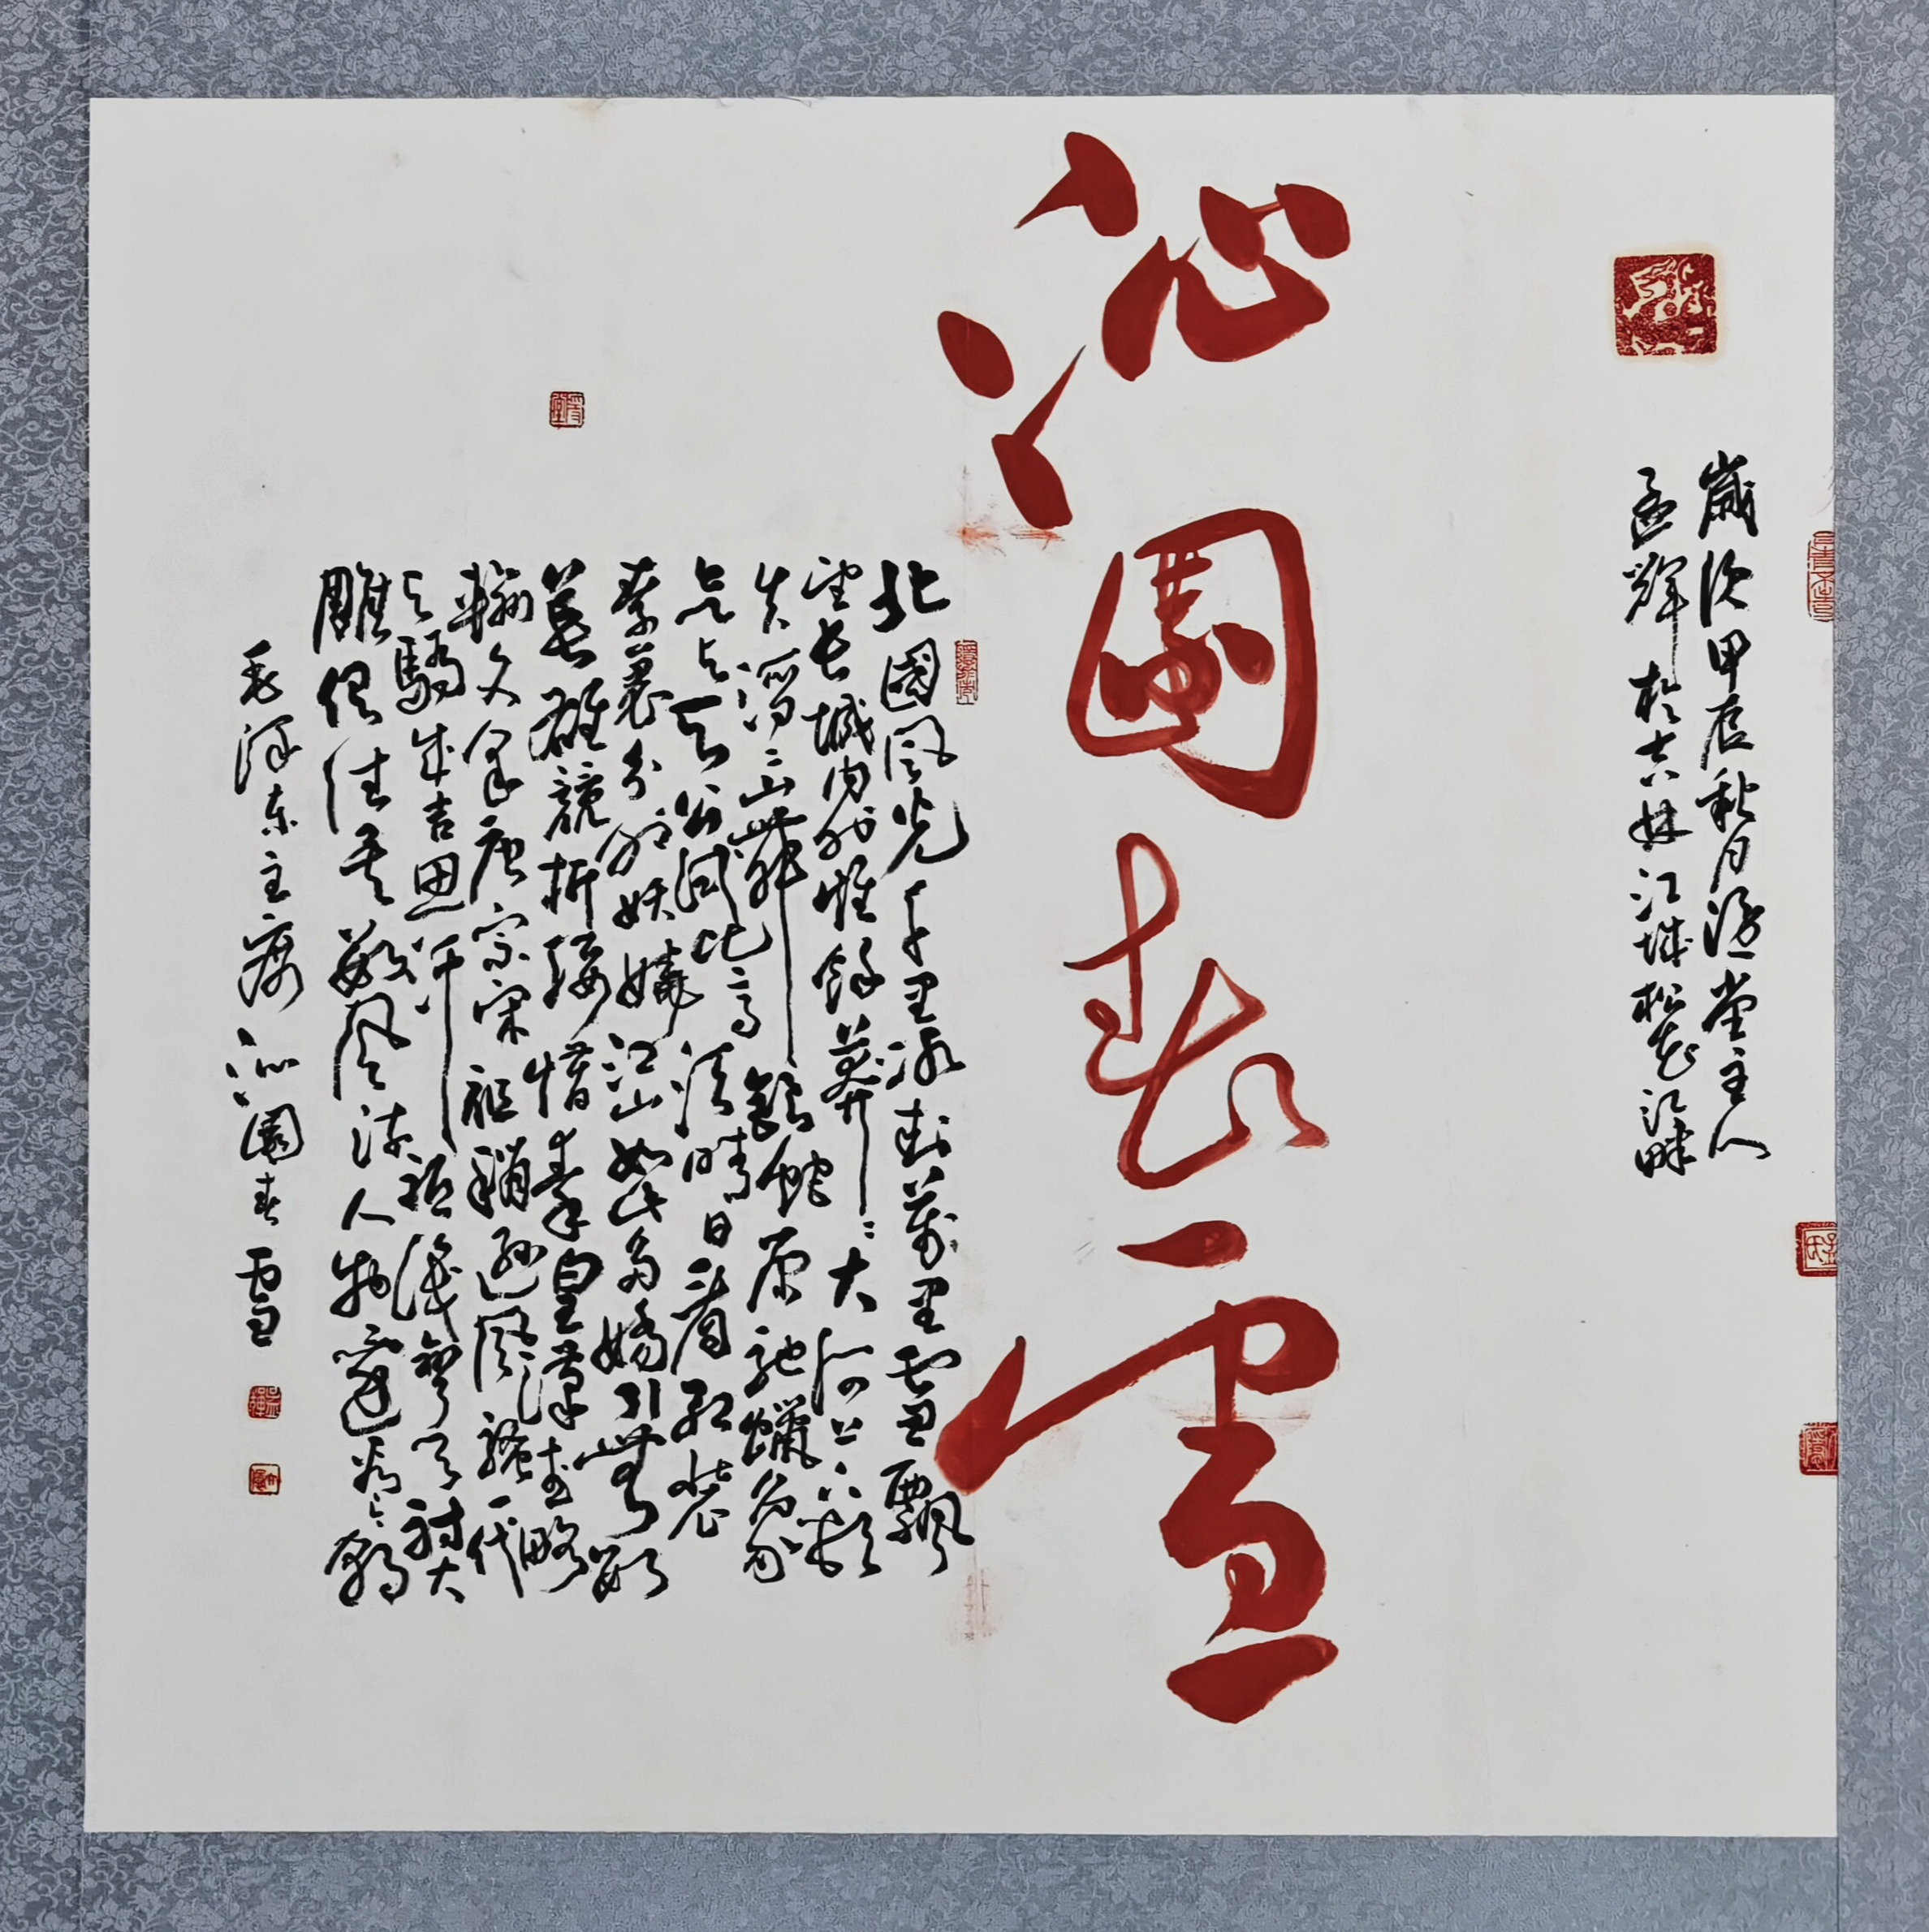 歲次甲辰秋月堂主人
孟輝於吉林江城松花江畔
沁園春雪
北國風光千里冰封萬里雪飄
望長城內外惟餘莽々大河上下頓
失滔々山舞銀蛇原馳蠟象
欲與天公試比高須晴日看紅裝
素裹分外妖嬈江山如此多嬌引無數
英雄競折腰惜秦皇漢武略
輸文采唐宗宋祖稍遜風騷一代
天驕成吉思汗祗識彎弓射大
雕俱往矣數風流人物還看今朝
毛澤東主席沁園春雪